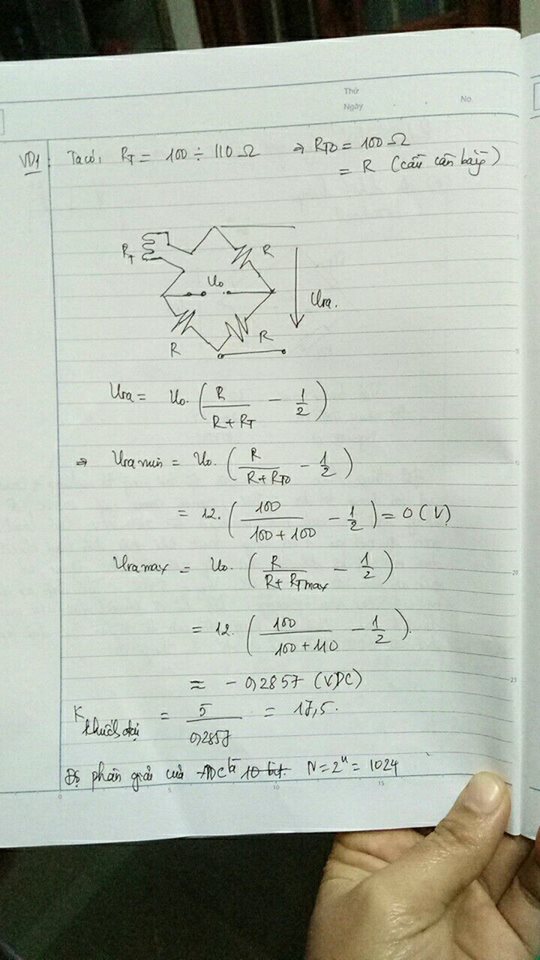 Thứ
Ngày . . No.
VD1: Ta có: R_T = 100 ÷ 110 Ω ⇒ R_T0 = 100 Ω
= R (cầu cân bằng)
R_T
R
U₀
Ura.
R
R
Ura = U₀. (R / (R + R_T) - 1/2)
⇒ Ura min = U₀. (R / (R + R_T0) - 1/2)
= 12. (100 / (100 + 100) - 1/2) = 0 (V)
Ura max = U₀. (R / (R + R_Tmax) - 1/2)
= 12. (100 / (100 + 110) - 1/2).
≈ - 0,2857 (VDC)
K khuếch đại = 5 / 0,2857 = 17,5.
Độ phân giải của ADC là 10 bit. N = 2ⁿ = 1024
0 5 10 15